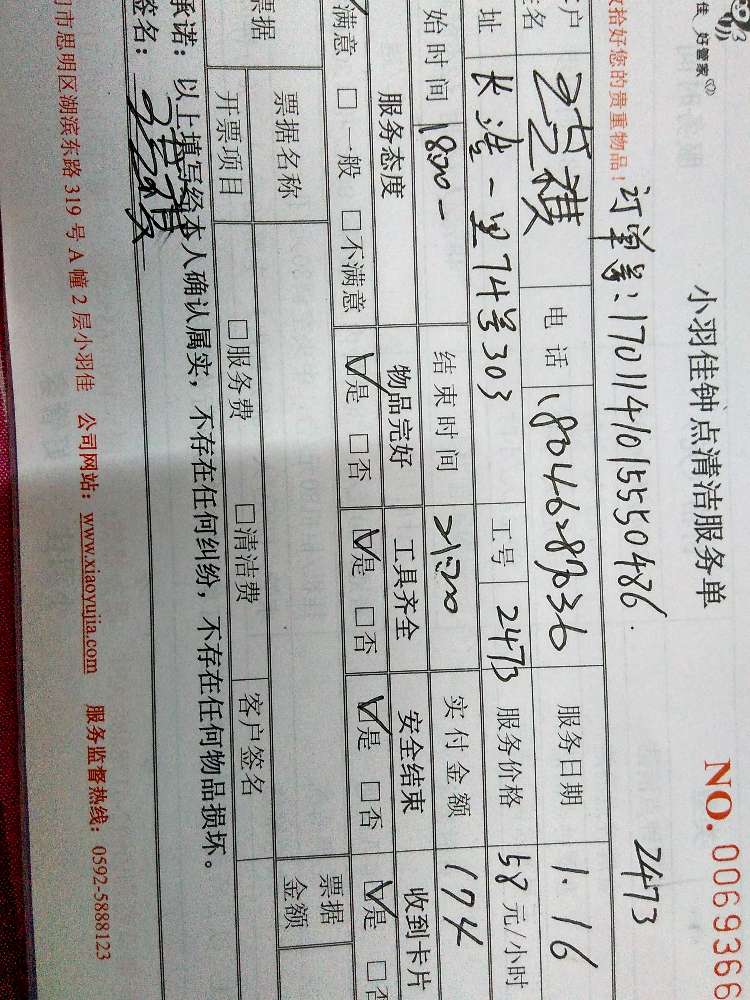 佳 好管家
小羽佳钟点清洁服务单
NO. 0069366
收拾好您的贵重物品！ 订单号：1701141015550486. 2473
户名 电话 18046289036 服务日期 1.16
址 长浩一里74号303 工号 2473 服务价格 58 元/小时
始时间 18:00- 结束时间 21:00 实付金额 174
服务态度 物品完好 工具齐全 安全结束 收到卡片
满意 □一般 □不满意 ☑是 □否 ☑是 □否 ☑是 □否 ☑是 □否
票据 票据名称 票据金额
开票项目 □服务费 □清洁费 客户签名
承诺：以上填写经本人确认属实，不存在任何纠纷，不存在任何物品损坏。
签名：
门市思明区湖滨东路 319 号 A 幢 2 层小羽佳 公司网站：www.xiaoyujia.com 服务监督热线：0592-5888123